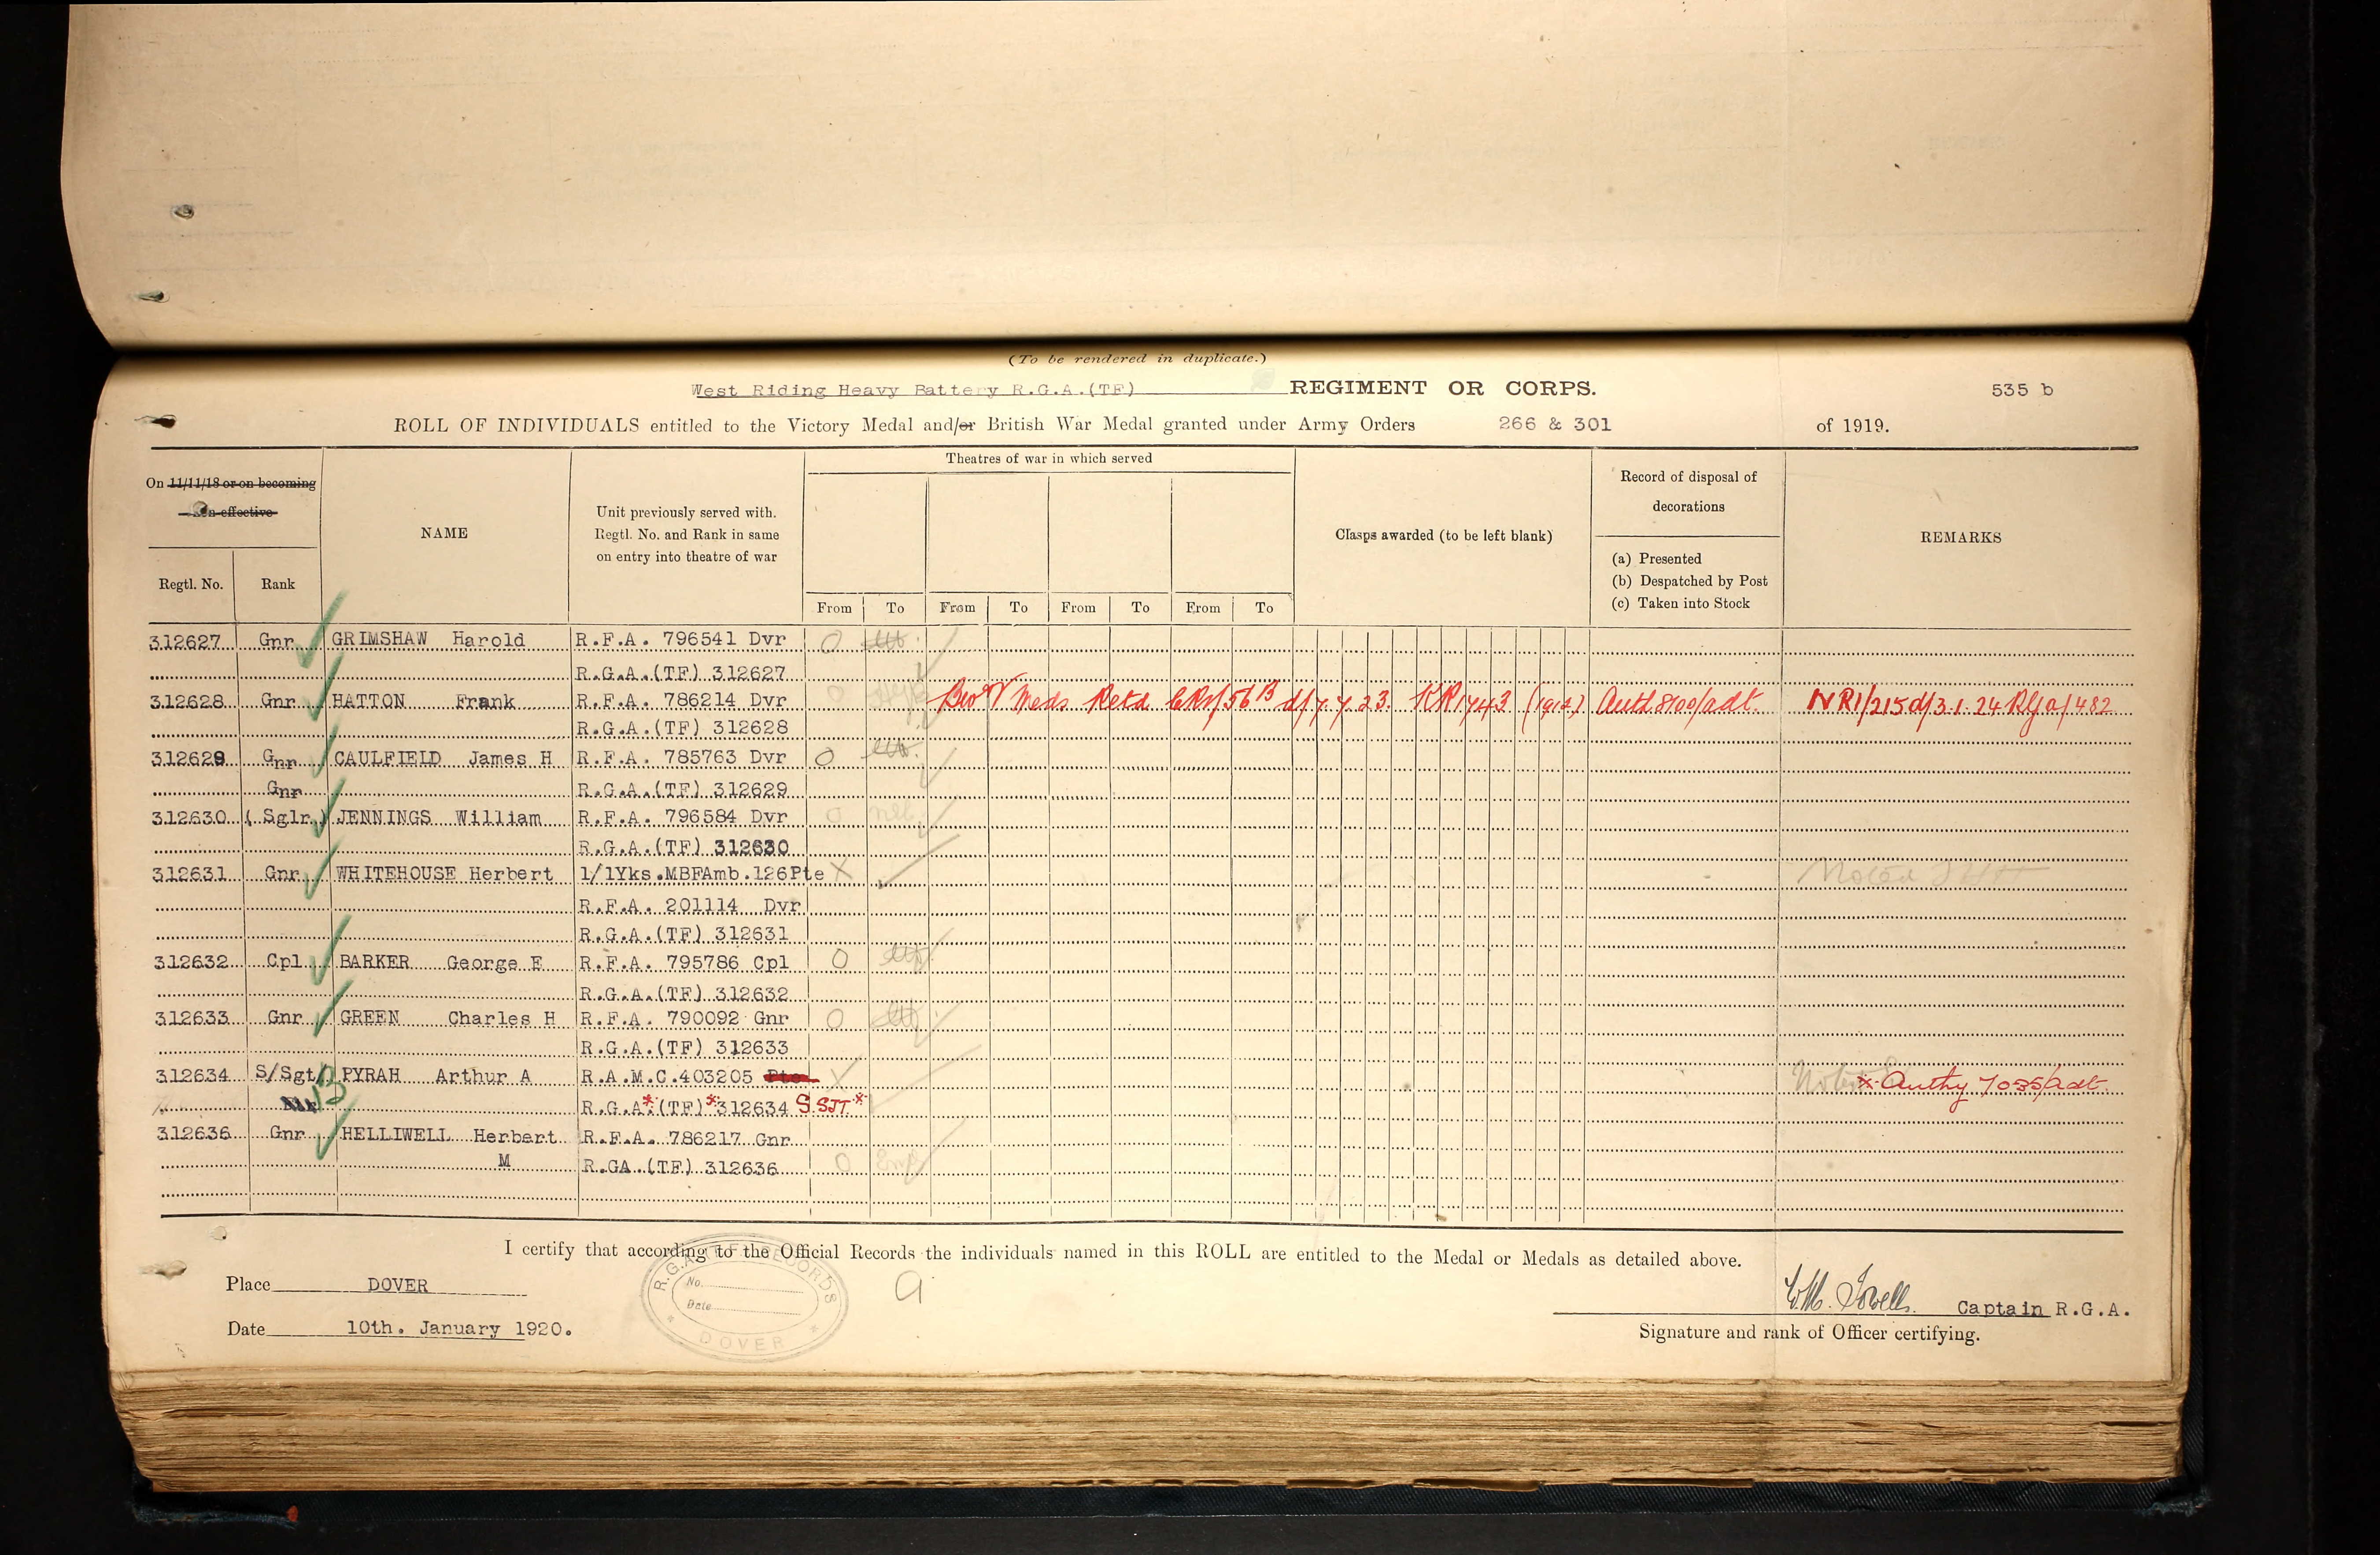 (To be rendered in duplicate.)
West Riding Heavy Battery R.G.A.(TF) REGIMENT OR CORPS. 535 b
ROLL OF INDIVIDUALS entitled to the Victory Medal and/or British War Medal granted under Army Orders 266 & 301 of 1919.
On 11/11/18 or on becoming non-effective
Regtl. No. Rank
NAME
Unit previously served with. Regtl. No. and Rank in same on entry into theatre of war
Theatres of war in which served
From To From To From To From To
Clasps awarded (to be left blank)
Record of disposal of decorations
(a) Presented
(b) Despatched by Post
(c) Taken into Stock
REMARKS
312627 Gnr GRIMSHAW Harold R.F.A. 796541 Dvr O
R.G.A.(TF) 312627
312628 Gnr HATTON Frank R.F.A. 786214 Dvr O BW & V Meds Retd d/7.7.23. KR1743 (1912) Auth 8100/adt. NR1/215 d/3.1.24 RGA/482
R.G.A.(TF) 312628
312629 Gnr CAULFIELD James H R.F.A. 785763 Dvr O
R.G.A.(TF) 312629
Gnr
312630 (Sglr) JENNINGS William R.F.A. 796584 Dvr O
R.G.A.(TF) 312630
312631 Gnr WHITEHOUSE Herbert 1/1Yks.MBFAmb.126Pte X Noted
R.F.A. 201114 Dvr
R.G.A.(TF) 312631
312632 Cpl BARKER George E R.F.A. 795786 Cpl O
R.G.A.(TF) 312632
312633 Gnr GREEN Charles H R.F.A. 790092 Gnr O
R.G.A.(TF) 312633
312634 S/Sgt PYRAH Arthur A R.A.M.C.403205 Pte X * Authy 7035/adt.
R.G.A*.(TF)*312634 S SJT*
312636 Gnr HELLIWELL Herbert R.F.A. 786217 Gnr
M R.GA.(TF) 312636 O
I certify that according to the Official Records the individuals named in this ROLL are entitled to the Medal or Medals as detailed above.
Place DOVER
R.G.A. RECORDS
No.
Date
DOVER
Captain R.G.A.
Date 10th. January 1920.
Signature and rank of Officer certifying.